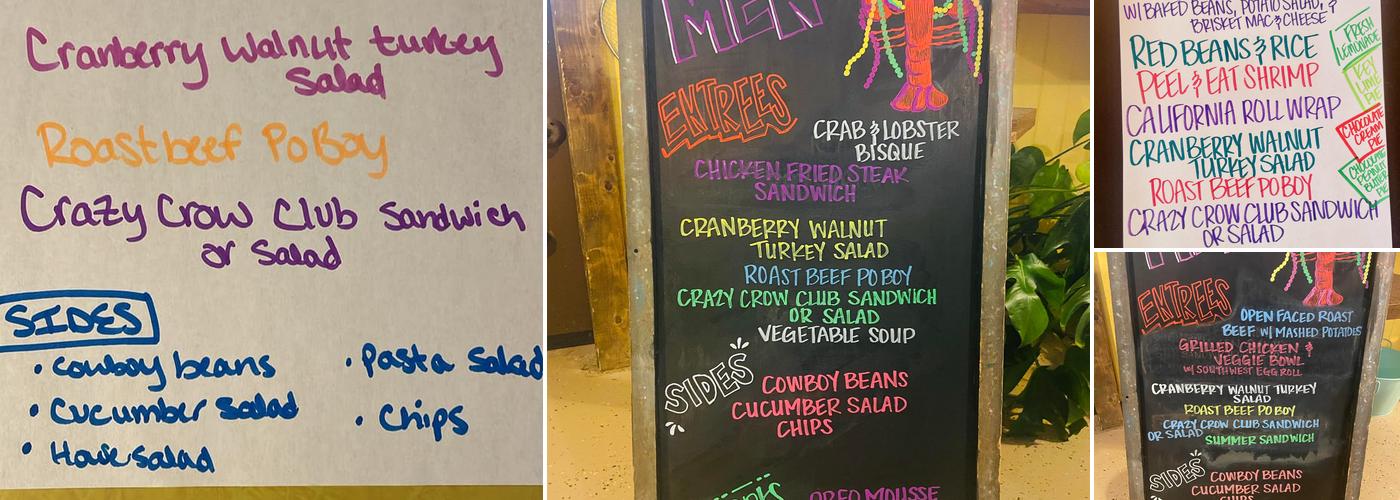 Cranberry Walnut turkey
Salad
Roastbeef PoBoy
Crazy Crow Club Sandwich
or Salad
SIDES
• cowboy beans
• Pasta Salad
• Cucumber Salad
• Chips
• House Salad
MEN
ENTREES
CRAB & LOBSTER
BISQUE
CHICKEN FRIED STEAK
SANDWICH
CRANBERRY WALNUT
TURKEY SALAD
ROAST BEEF PO BOY
CRAZY CROW CLUB SANDWICH
OR SALAD
VEGETABLE SOUP
SIDES
COWBOY BEANS
CUCUMBER SALAD
CHIPS
OREO MOUSSE
W/ BAKED BEANS, POTATO SALAD, &
BRISKET MAC & CHEESE
RED BEANS & RICE
PEEL & EAT SHRIMP
CALIFORNIA ROLL WRAP
CRANBERRY WALNUT
TURKEY SALAD
ROAST BEEF PO BOY
CRAZY CROW CLUB SANDWICH
OR SALAD
FRESH
LEMONADE
KEY
LIME
PIE
CHOCOLATE
CREAM
PIE
CHOCOLATE
PEANUT
BUTTER
PIE
ENTREES
OPEN FACED ROAST
BEEF W/ MASHED POTATOES
GRILLED CHICKEN &
VEGGIE BOWL
W/ SOUTHWEST EGG ROLL
CRANBERRY WALNUT TURKEY
SALAD
ROAST BEEF PO BOY
CRAZY CROW CLUB SANDWICH
OR SALAD
SUMMER SANDWICH
SIDES
COWBOY BEANS
CUCUMBER SALAD
CHIPS